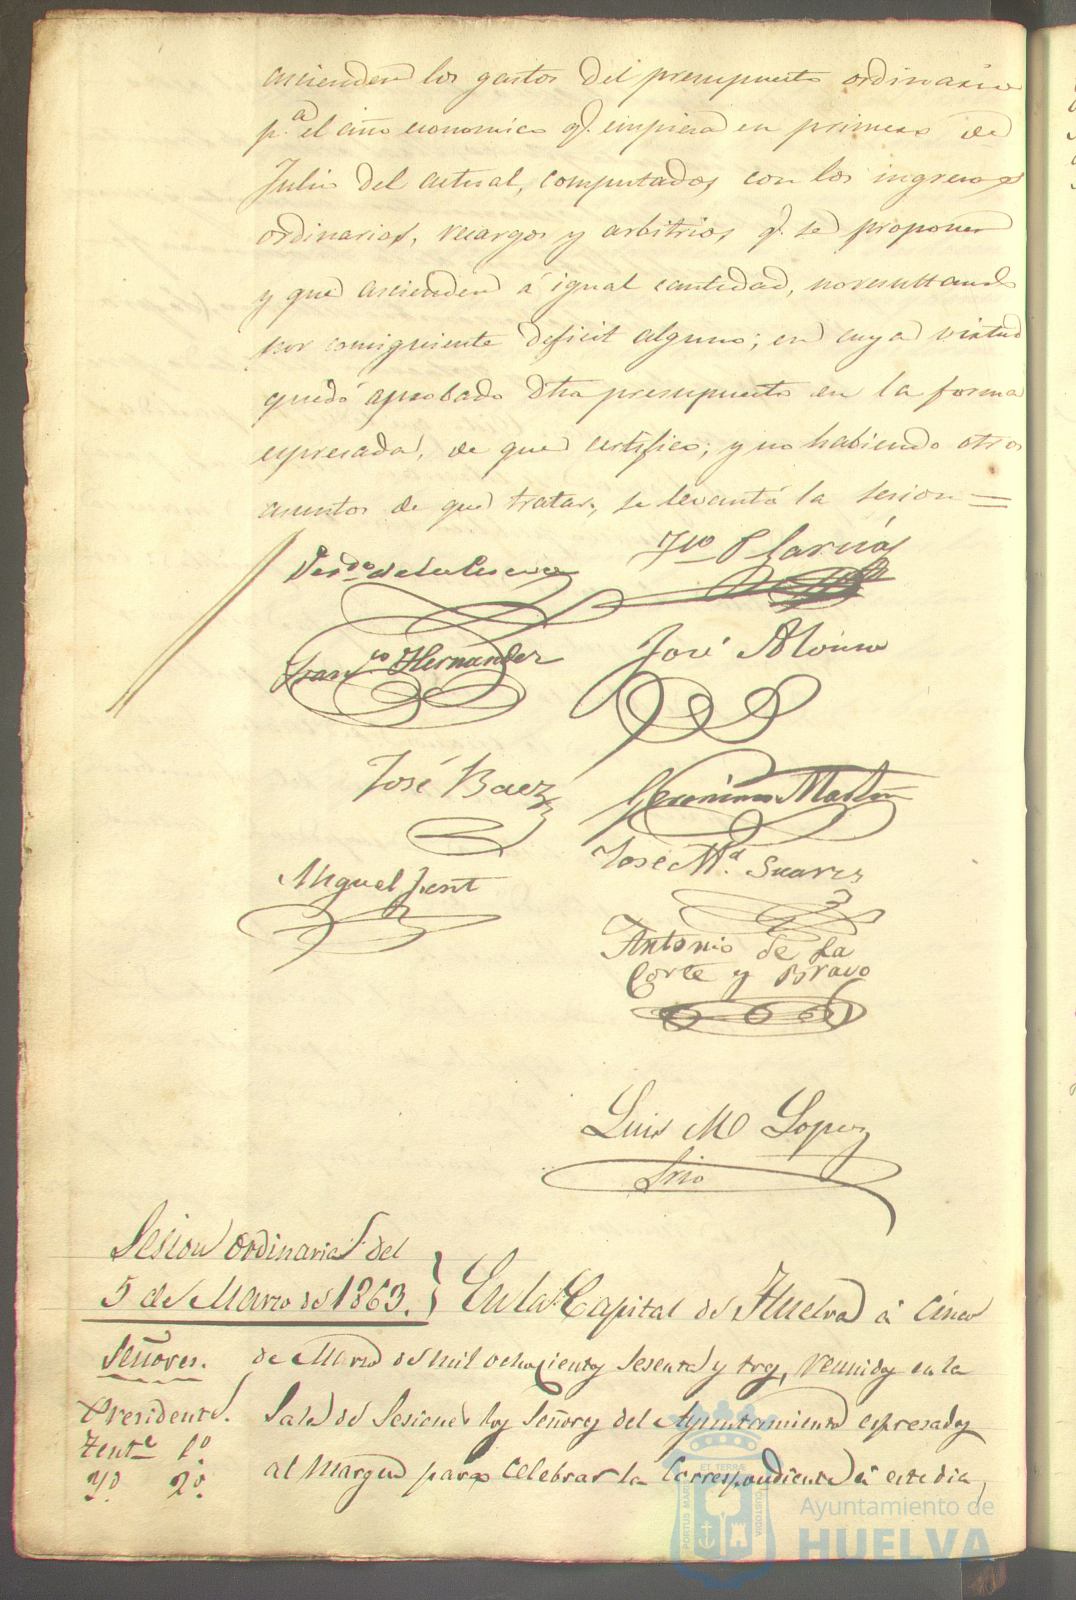 ascienden los gastos del presupuesto ordinario
p.ª el año economico q.e empieza en primero de
Julio del actual, computados con los ingresos
ordinarios, recargos y arbitrios q.e se proponen
y que ascienden á igual cantidad, no resultando
por consiguiente deficit alguno; en cuya virtud
quedó aprobado dho presupuesto en la forma
espresada, de que certifico; y no habiendo otros
asuntos de que tratar, se levantó la sesion =
de la Garcia
Fran.co Hernandez José Alonso
José Baez Geronimo Martin
José M.ª Suarez
Miguel
Antonio de La
Corte y Bravo
Luis M Lopez
Srio
Sesion ordinaria del
5 de Marzo de 1863. } En la Capital de Huelva á cinco
Señores. de Marzo de mil ochocientos sesenta y tres, reunidos en la
Presidente. Sala de Sesiones los Señores del Ayuntamiento espresados
Tente 1º al margen para celebrar la correspondiente á este dia,
Yd. 2º
PORTUS MARIS ET TERRAE CUSTODIA
Ayuntamiento de
HUELVA